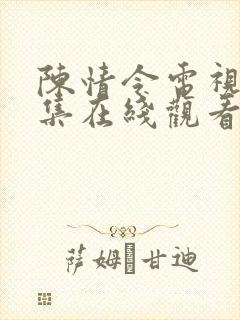 陳情令電視
集在綫觀看
萨姆·甘迪